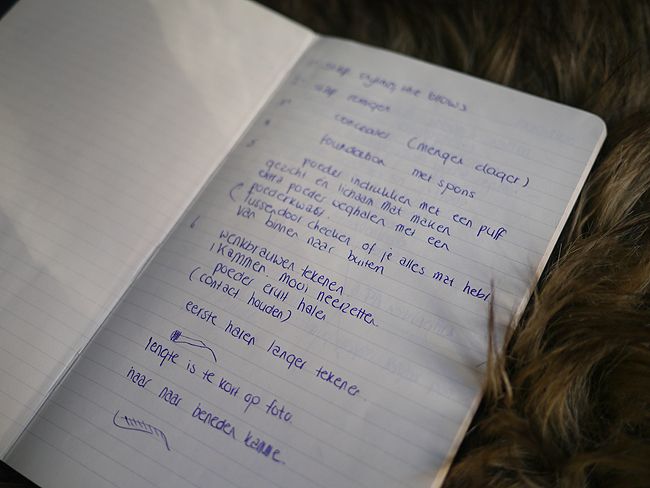 1 stap
brows
2 stap reinigen
3 concealer (menger dager)
4 foundation met spons
5 poeder indrukken met een puff
gezicht en lichaam mat maken
extra poeder weghalen met een
poederkwast.
(Tussendoor checken of je alles mat hebt
van binnen naar buiten
6 wenkbrauwen tekenen
kammen. mooi neerzetten.
poeder eruit halen
(contact houden)
eerste haren langer tekenen.
lengte is te kort op foto.
haar naar beneden